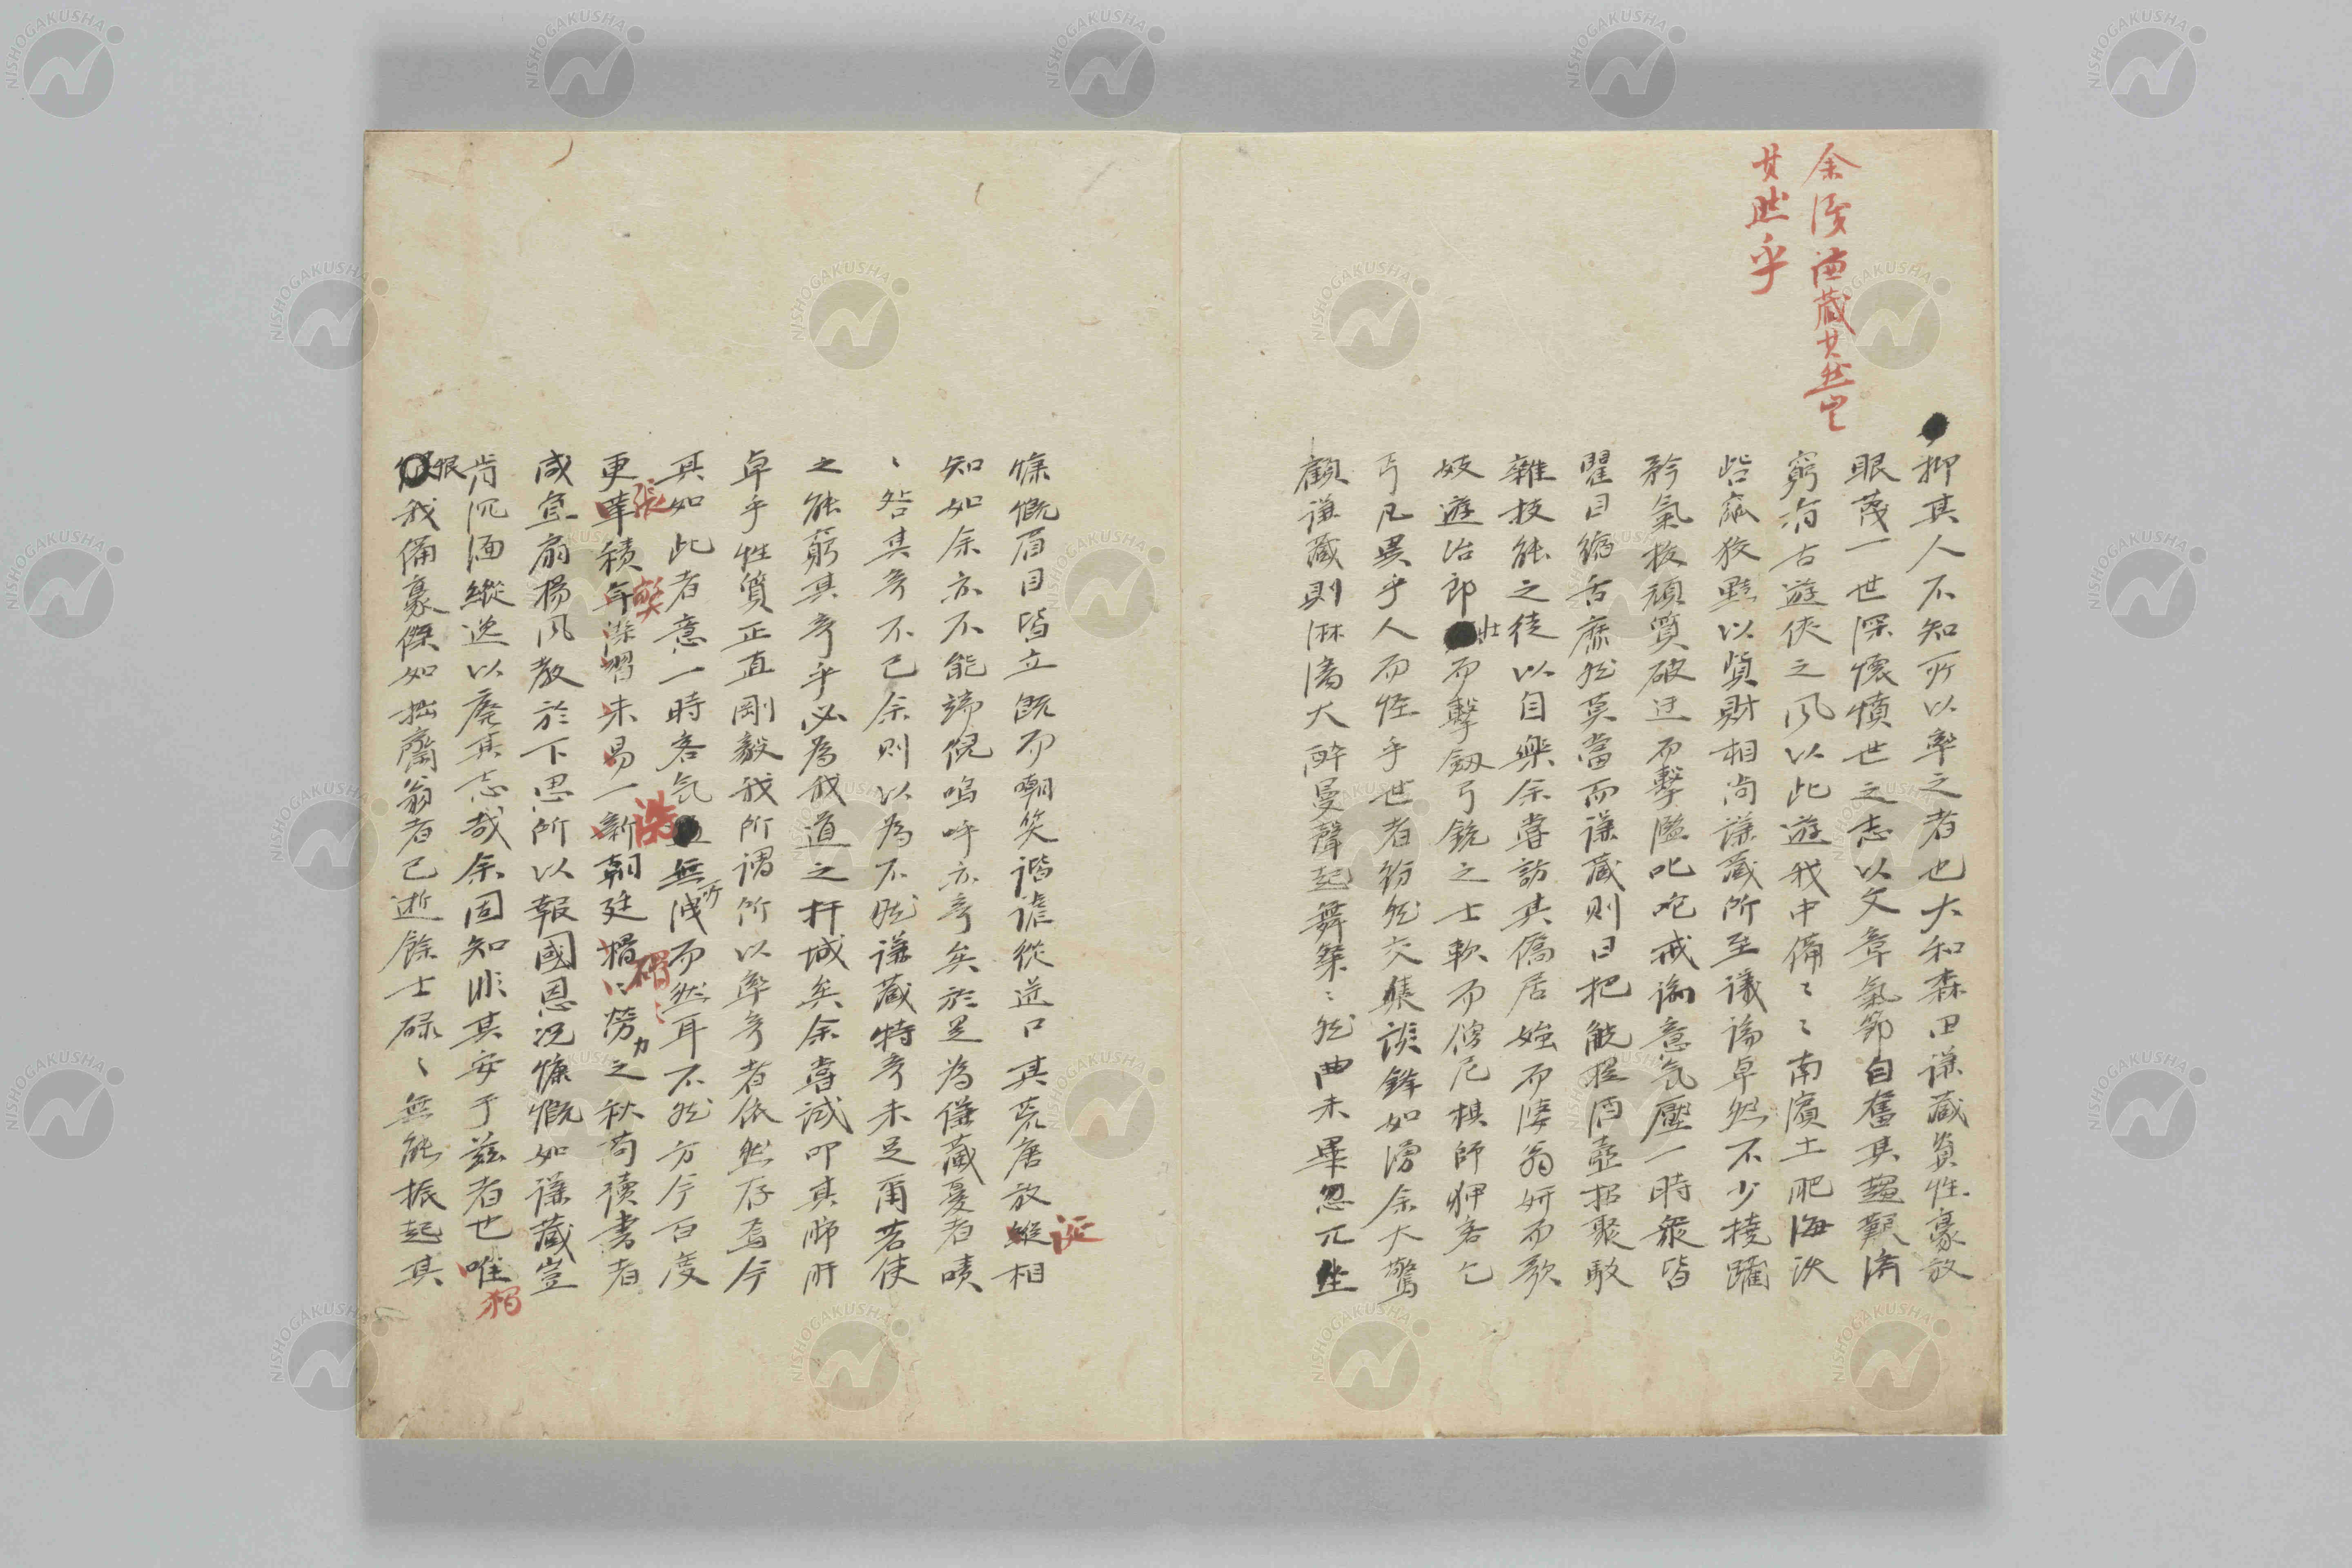 抑其人不知所以率之者也大和森田謙蔵資性豪放
眼蔑一世深懷憤世之志以文章氣節自奮其趨艱済
窮有古遊俠之風以此遊我中備〻〻南濱土肥海決
呰窳狡黠以貨財相尚謙蔵所至議論卓然不少撓躍
矜氣抜頑質破迂而擊隘叱咜戒諭意気壓一時衆皆
瞿目縮舌靡然莫當而謙蔵則日把觥提酒壺招聚
雜技能之徒以自樂余嘗訪其僑居妓而
妓遊冶郎壮而擊劔弓銃之士歌而僧尼棋師狎客乞
丐凡異乎人而怪乎世者紛然交集談鋒如湧余大驚
顧謙蔵則淋漓大醉曼聲起舞桀〻然曲未畢忽兀坐
慷慨眉目皆立既而嘲笑諧謔從逆口其荒唐放縱相
知如余亦不能端倪嗚呼亦奇矣於是為僅蔵憂者嘖
〻咎其奇不已余則以為不然謙蔵特奇未足爾若使
之能窮其奇乎必為我道之扞城矣余嘗試叩其肺肝
卓乎性質正直剛毅我所謂所以率奇者依然存焉今
其如此者意一時客気無所洩而然耳不然方今百度
更革積年染習未易一新朝廷榻〻勞力之秋苟讀書者
咸宜扇揚風教於下思所以報國恩況慷慨如謙蔵豈
肯沉湎縱逸以廃其志哉余固知非其安于茲者也唯
恨我備豪傑如拙齋翁者已逝餘士碌〻無能振起其
余後
謙蔵其
其然乎
張
弊
洗
獨